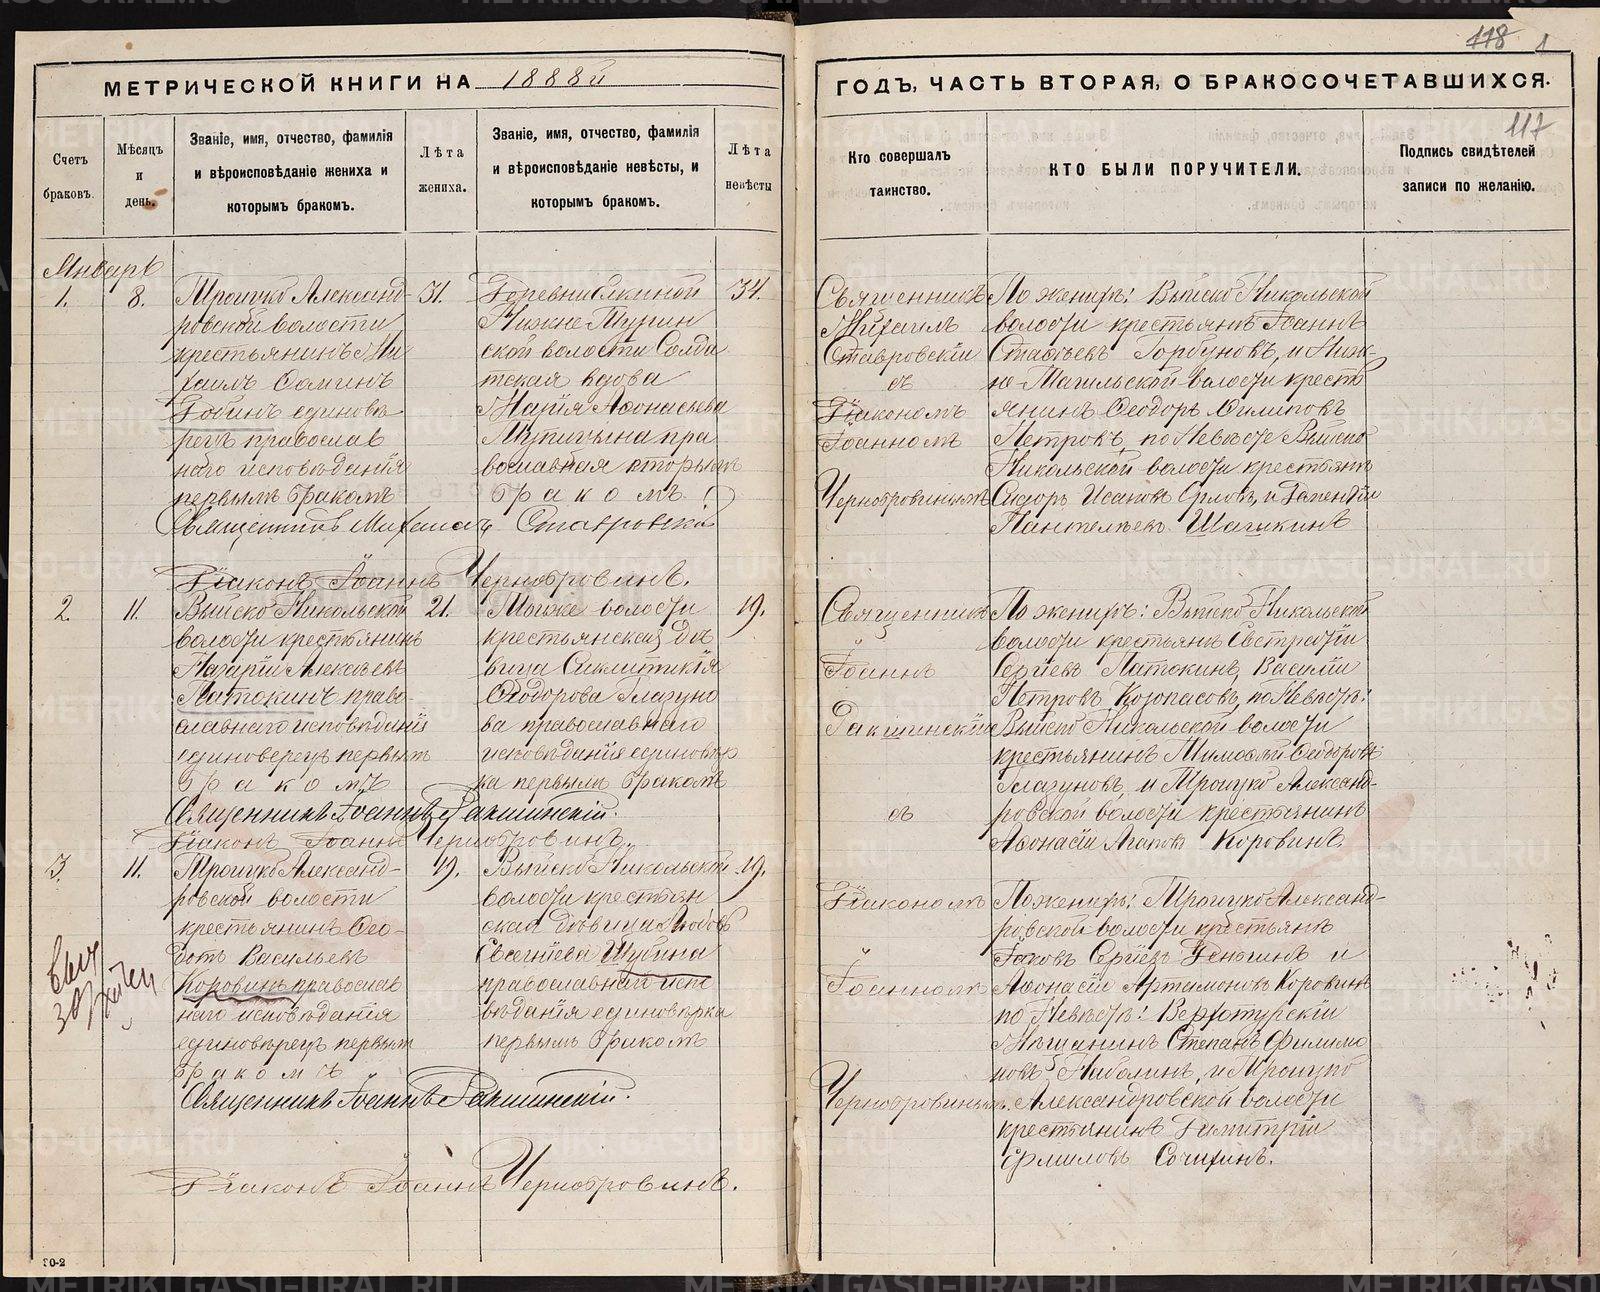 118 1
МЕТРИЧЕСКОЙ КНИГИ НА 1888й
ГОДЪ, ЧАСТЬ ВТОРАЯ, О БРАКОСОЧЕТАВШИХСЯ.
117
Счетъ
браковъ.
Мѣсяцъ
и
день.
Званіе, имя, отчество, фамилія
и вѣроисповѣданіе жениха и
которымъ бракомъ.
Лѣта
жениха.
Званіе, имя, отчество, фамилія
и вѣроисповѣданіе невѣсты, и
которымъ бракомъ.
Лѣта
невѣсты
Кто совершалъ
таинство.
КТО БЫЛИ ПОРУЧИТЕЛИ.
Подпись свидѣтелей
записи по желанію.
Январь
1.
8.
Троицко Александ-
ровской волости
крестьянинъ Ми
хаилъ Ѳоминъ
Бобинъ единовѣ
рецъ православ
наго исповѣданія
первымъ бракомъ
31.
Нижне Турин
ской волости Солда
тская вдова
Марія Аѳонасьева
пра
вославная вторымъ
бракомъ.
34.
Священникъ
Михаилъ
Ставровскій
съ
Діакономъ
Іоанномъ
Чернобровинымъ
По женихѣ: Выйско Никольской
волости крестьянъ Іоаннъ
Горбуновъ, и Ниж-
не-Тагильской волости кресть
янинъ Ѳеодоръ Филиповъ
Петровъ, по Невѣстѣ Выйско
Никольской волости крестьянъ
Сидоръ Исаковъ Орловъ, и
Пантелѣевъ Шагинъ
Священникъ Михаилъ Ставровскій
Діаконъ Іоаннъ Чернобровинъ.
2.
11.
Выйско Никольской
волости крестьянинъ
Назарій Алексѣевъ
Латокинъ право-
славнаго исповѣданія
единоверецъ первымъ
бракомъ
21.
Тойже волости
крестьянская дѣ
вица Синклитикія
Ѳеодорова Глазуно
ва православнаго
исповѣданія единовѣр
ка первымъ бракомъ
19.
Священникъ
Іоаннъ
съ
По женихѣ: Выйско Никольской
волости крестьянъ Евстратій
Сергіевъ Латокинъ, Василій
Петровъ Козопасовъ, по Невѣстѣ:
Выйско Никольской волости
крестьянинъ Тимоѳей Ѳеодоровъ
Глазуновъ, и Троицко Александ-
ровской волости крестьянинъ
Аѳонасій Агаповъ Коровинъ.
Діаконъ Іоаннъ Чернобровинъ.
3.
11.
Троицко Александ-
ровской волости
крестьянинъ Ѳео-
дотъ Васильевъ
Коровинъ православ
наго исповѣданія
единовѣрецъ первымъ
бракомъ
19.
Выйско Никольской
волости крестьян
ская дѣвица Любовь
Евсегніева Шубина
православнаго испо
вѣданія единовѣрка
первымъ бракомъ
19.
Діакономъ
Іоанномъ
Чернобровинымъ.
По женихѣ: Троицко Александ-
ровской волости крестьянъ
Іаковъ Сергіевъ и
Аѳонасій Артамоновъ Коровинъ
по Невѣстѣ: Верхотурскій
Мѣщанинъ Степанъ Филимо
новъ и Троицко
Александровской волости
крестьянинъ Димитрій
Ермиловъ
Діаконъ Іоаннъ Чернобровинъ.
70-2
METRIKI.GASO-URAL.RU